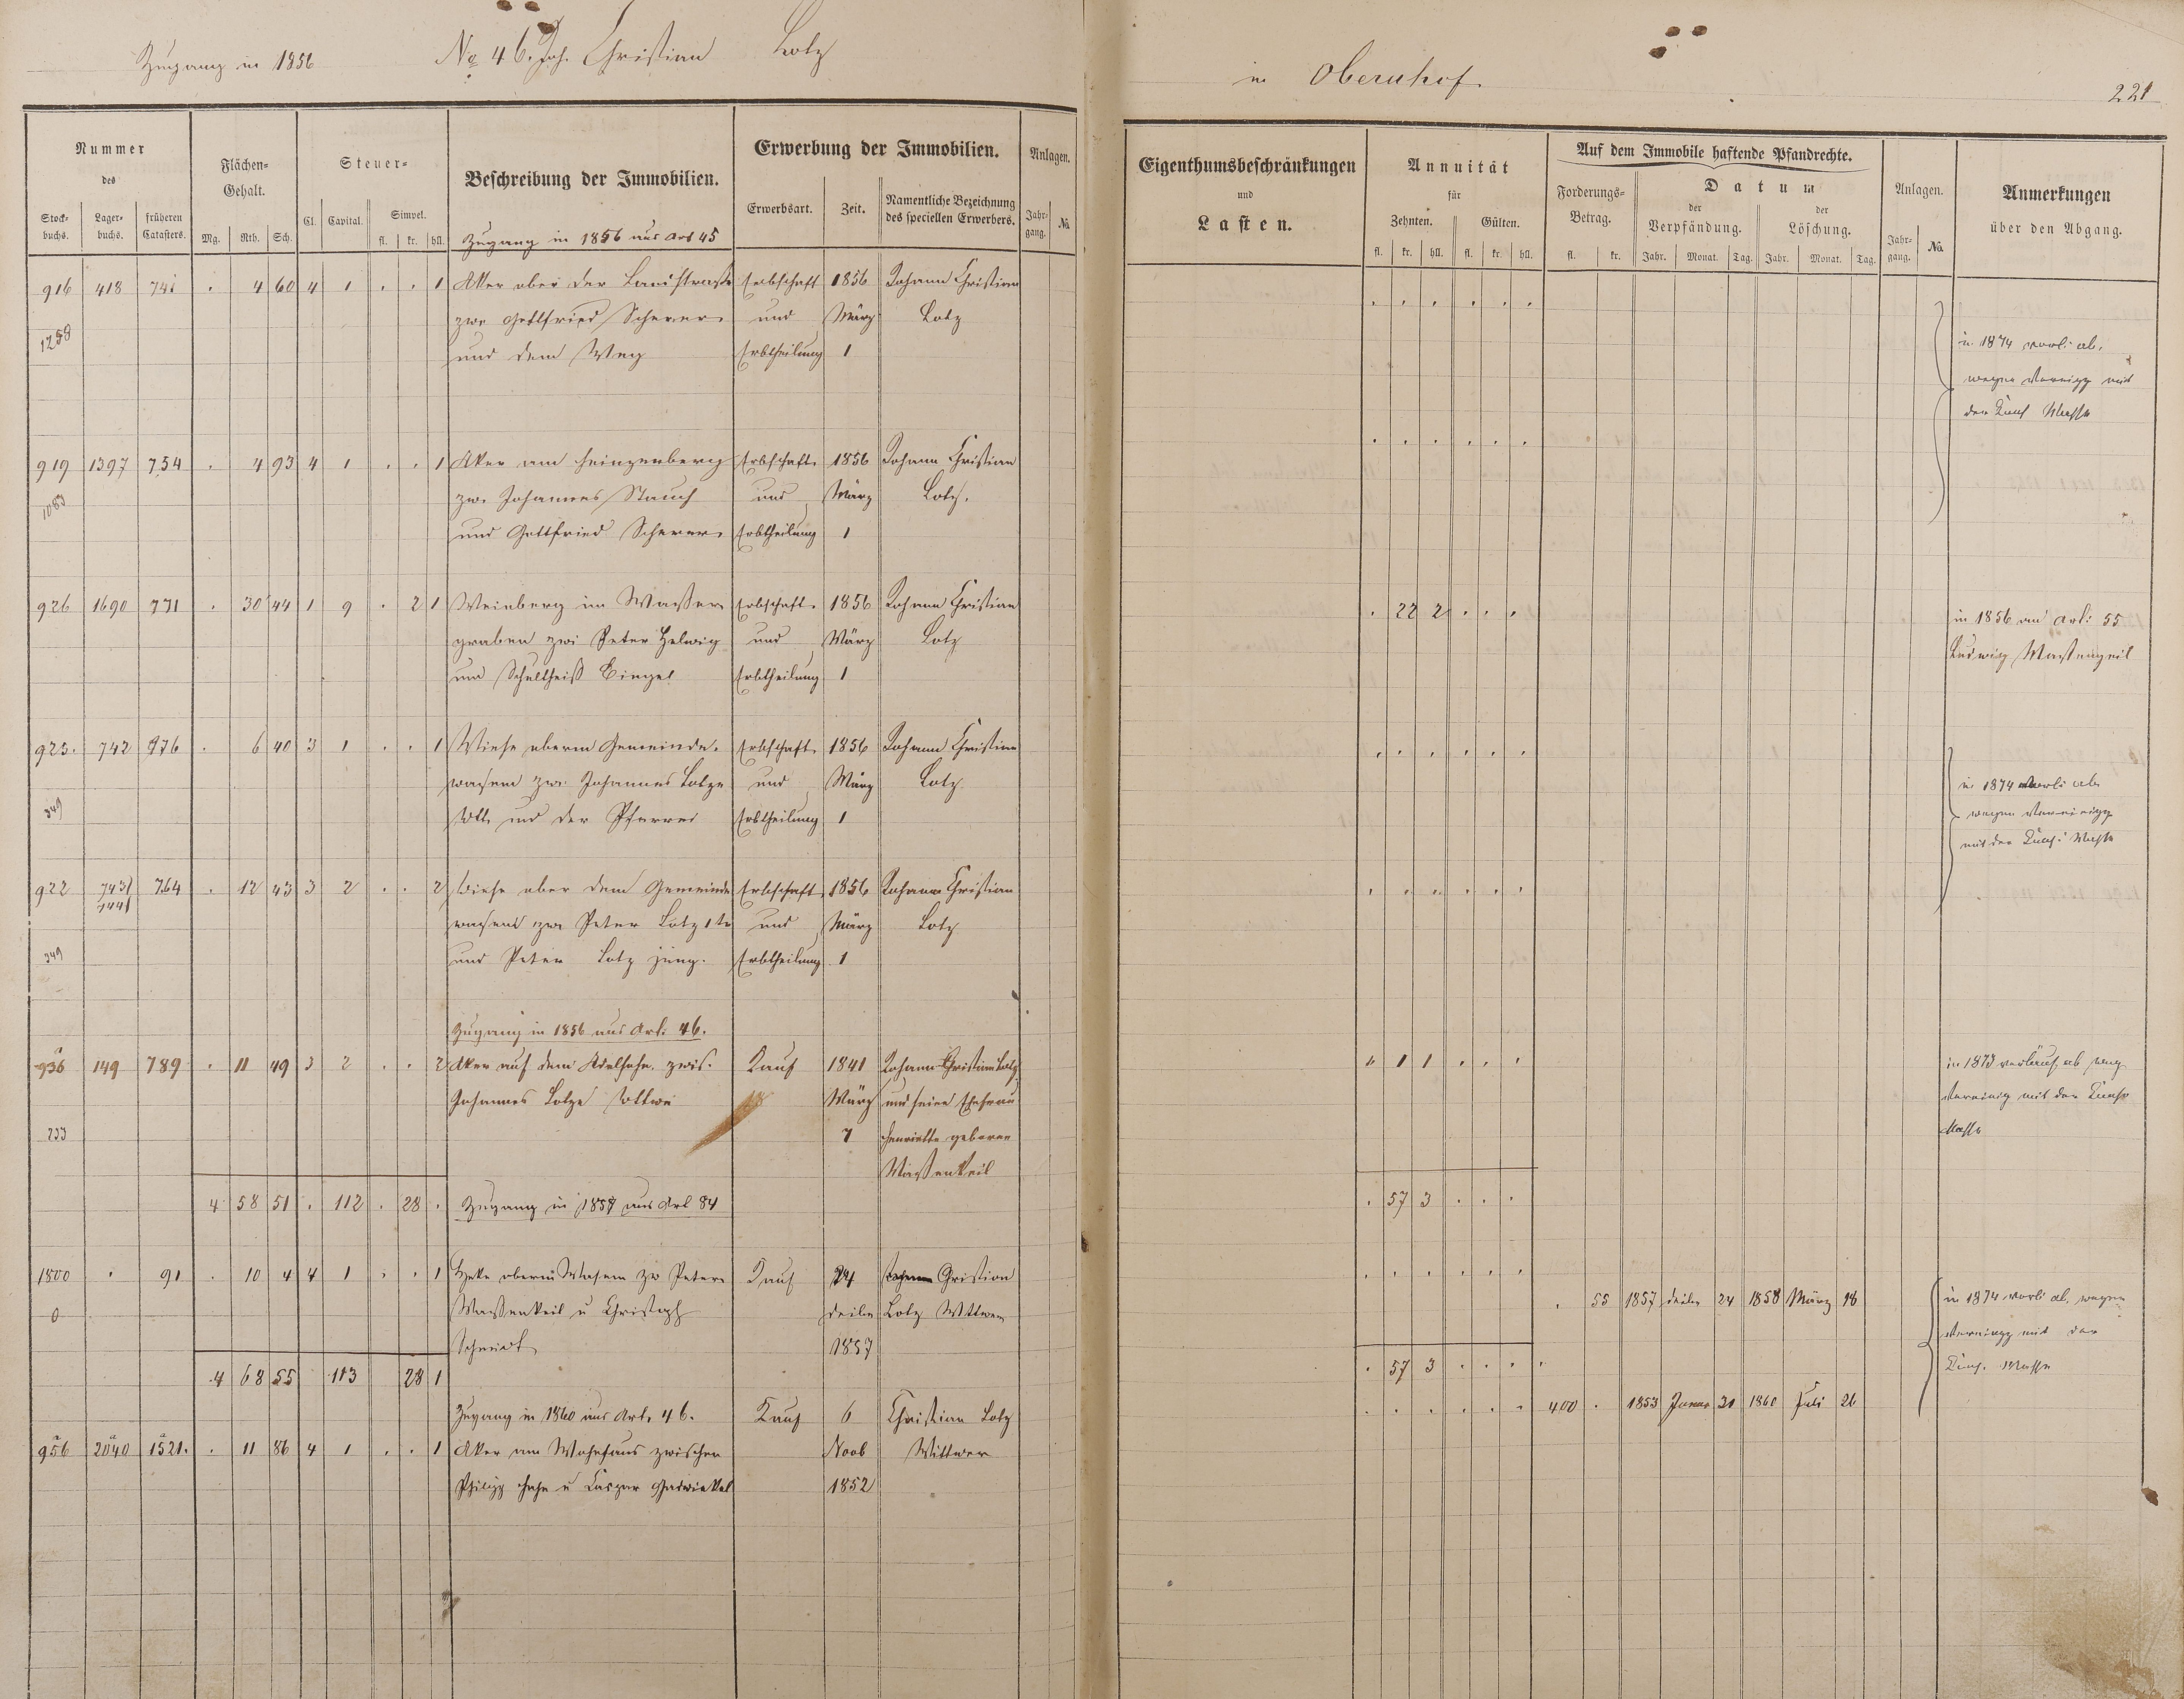 Zugang in 1856
No 46. Joh. Christian Lotz
in Obernhof
221
Nummer des
Stockbuchs. Lagerbuchs. früheren Catasters.
Flächen-Gehalt.
Mg. Rth. Sch.
Steuer-
Cl. Capital. Simpel.
fl. kr. hll.
Beschreibung der Immobilien.
Erwerbung der Immobilien.
Erwerbsart. Zeit. Namentliche Bezeichnung des speciellen Erwerbers.
Anlagen.
Jahrgang. No.
Eigenthumsbeschränkungen und Lasten.
Annuität für
Zehnten. Gülten.
fl. kr. hll. fl. kr. hll.
Auf dem Immobile haftende Pfandrechte.
Forderungs-Betrag.
fl. kr.
Datum
der Verpfändung. der Löschung.
Jahr. Monat. Tag. Jahr. Monat. Tag.
Anlagen.
Jahrgang. No.
Anmerkungen über den Abgang.
Zugang in 1856 aus Art 45
916 418 741 . 4 60 4 1 . . 1 Aker ober der Landstrasse Erbschaft 1856 Johann Christian
zw. Gottfried Scherer und März Lotz
1258
und dem Weg Erbtheilung 1
in 1874 ab,
wegen mit
der Masse
919 1397 754 . 4 93 4 1 . . 1 Aker am Heinzenberg Erbschaft 1856 Johann Christian
1083 zw. Johannes Stauch und März Lotz.
und Gottfried Scherer Erbtheilung 1
926 1690 771 . 30 44 1 9 . 2 1 Weinberg im Wasser- Erbschaft 1856 Johann Christian . 22 2 . . .
graben zwi Peter Helwig und März Lotz
und Schultheiß Bingel Erbtheilung 1
in 1856 an Art: 55
Ludwig
925. 742 776 . 6 40 3 1 . . 1 Wiese oberm Gemeinde- Erbschaft 1856 Johann Christian
wasem zw. Johannes Lotze und März Lotz
349 und der Pfarrei Erbtheilung 1
in 1874 ab
wegen
mit der Masse
922 743 744 764 . 12 43 3 2 . . 2 Wiese ober dem Gemeinde Erbschaft 1856 Johann Christian
wasem zw. Peter Lotz 1te und März Lotz
349 und Peter Lotz jung. Erbtheilung 1
Zugang in 1856 aus Art: 46.
936 149 789 . 11 49 3 2 . . 2 Aker auf dem zwis. Kauf 1841 Johann Christian Lotz . 1 1 . . .
Johannes Lotze März und seine Ehefrau
233 7 Henriette geborene
in 1873 ab
mit der
Masse
4 58 51 . 112 . 28 . Zugang in 1857 aus Art 84 . 57 3 . . .
1800 . 91 . 10 4 4 1 . . 1 oberm Wasem zw Peter Kauf 24 Christian
0 u Christoph Lotz Wittwer
Schmidt 1857
. 55 1857 24 1858 März 18
in 1874 ab, wegen
mit der
Masse
4 68 55 113 28 1 . 57 3 . . .
Zugang in 1860 aus Art. 46. Kauf 6 Christian Lotz
400 . 1853 Januar 31 1860 Juli 26
956 2040 1521. . 11 86 4 1 . . 1 Aker am zwischen Novb Wittwer
Philipp u Caspar 1852